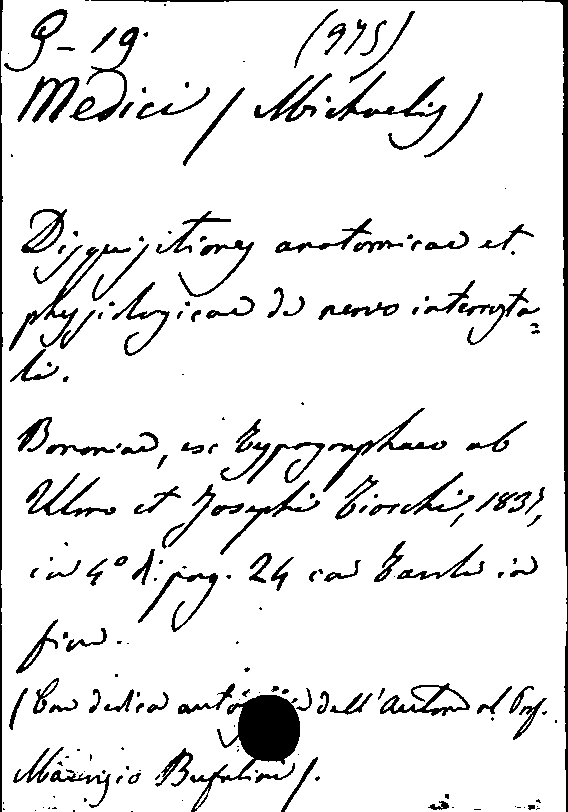 G-19. (975)
Medici (Michaelis)
Disquisitiones anatomicae et
physiologicae de nervo intercosta=
li.
Bononiae, ex Typographaeo ab
Ulmo et Josephi Tiocchi, 1837,
in 4° di pag. 24 con Tavole in
fine.
(Con dedica dell'Autore al Prof.
Maurizio Bufalini).